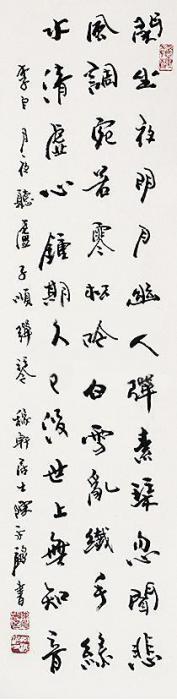 閑坐夜明月幽人彈素琴忽聞悲
風調宛若寒松吟白雪亂纖手綠
水清虛心鍾期久已沒世上無知音
李白月夜聽盧子順彈琴 軒居士陳書